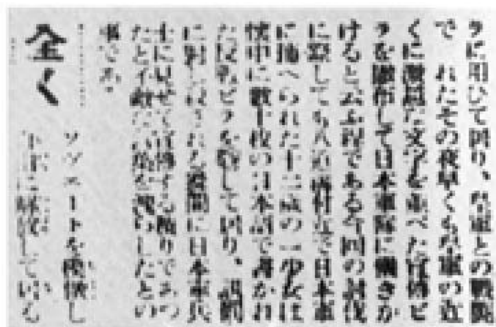 ラに用ひて居り、皇軍との戦闘
で　れたその夜早くも皇軍の近
くに激越な文字を並べた宣傳ビ
ラを撒布して日本軍隊に働きか
けると云ふ程である今回の討伐
に際しても八道溝付近で日本軍
に捕へられた十二歳の一少女は
懐中に數十枚の日本語で書かれ
た反戰ビラを隠して居り、訊問
に對し殺された瞬間に日本軍兵
士に見せて宣傳する積りであつ
たと不敵な言葉を洩らしたとの
事であ
全く
ソヴエートを後懐し
に解放して居る